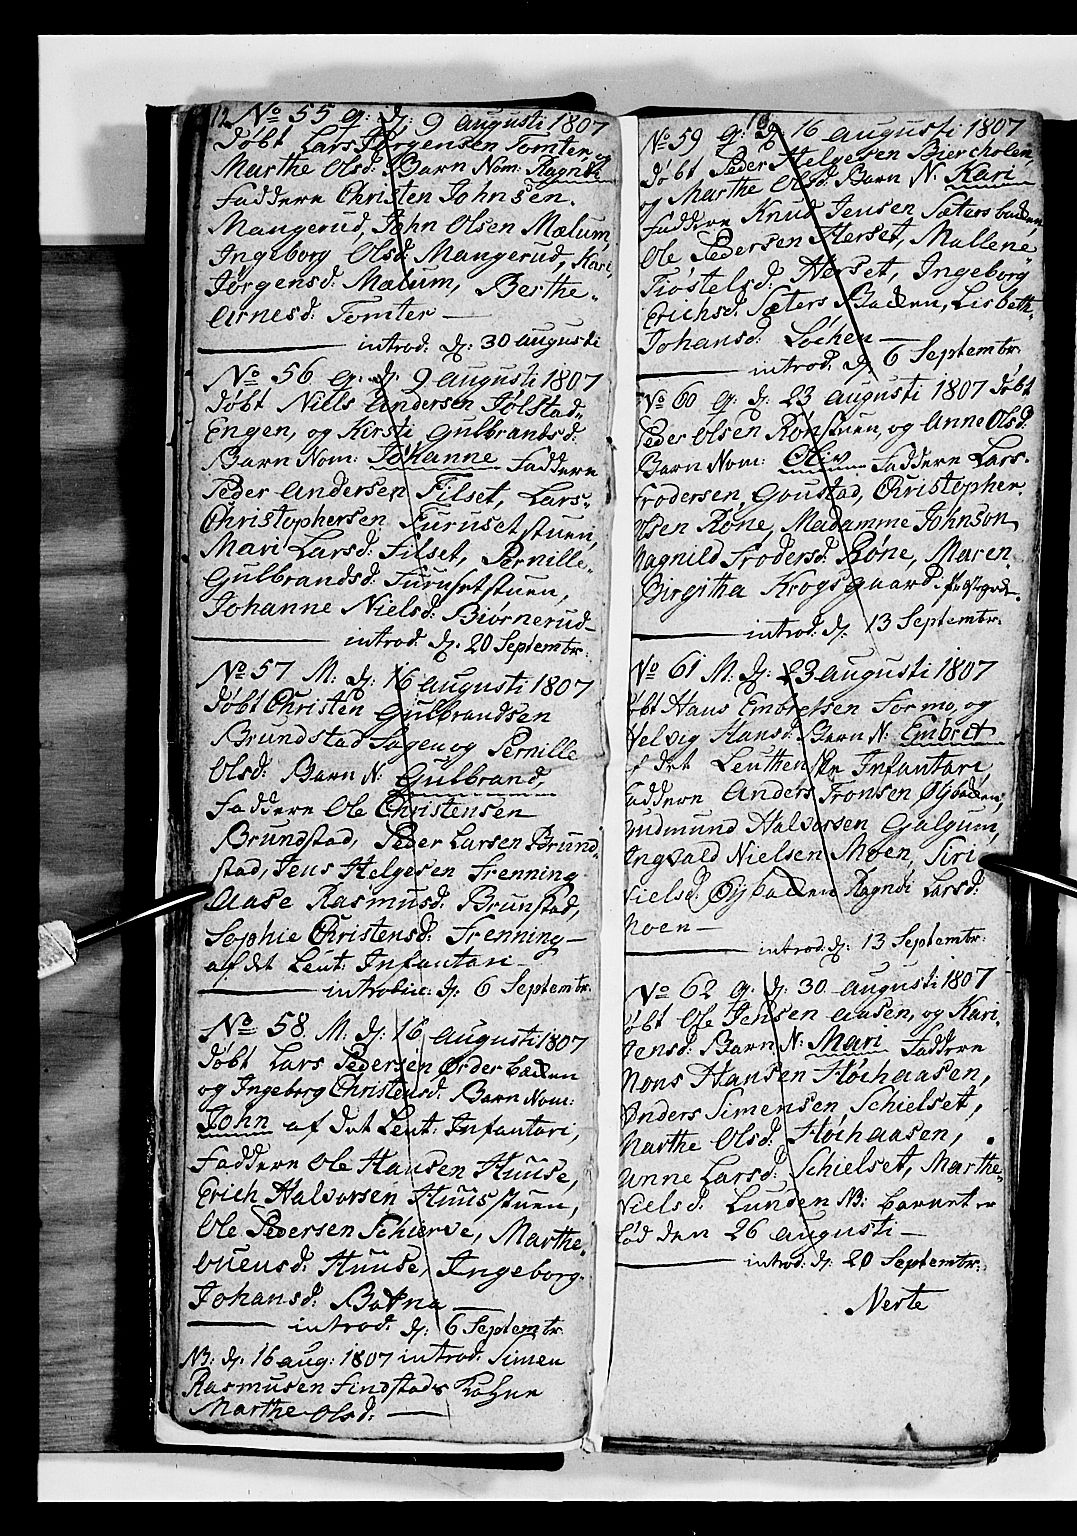 12 No 55 q: d: 9 augusti 1807
døbt Lars Jørgensen Tomter, og
Marthe Olsd: Barn Nom: Ragnild
Faddere Christen Johnsen
Mangerud, John Olsen Mælum,
Ingeborg Olsd: Mangerud, Kari
Jørgensd: Mælum, Berthe
Arnesd: Tomter —
introd: d: 30 augusti
No 56 q: d: 9 augusti 1807
døbt Niels Andersen Jølstad-
Engen, og Kirsti Gulbrandsd:
Barn Nom: Johanne Faddere
Peder Andersen Filset, Lars
Christophersen Furusetstuen,
Mari Larsd: Filset, Pernille
Gulbrandsd: Furusetstuen,
Johanne Nielsd: Biørnerud —
introd: d: 20 Septembr:
No 57 M: d: 16 augusti 1807
døbt Christen Gulbrandsen
Brundstad Hagen og Pernille
Olsd: Barn N: Gulbrand,
Faddere Ole Christensen
Brundstad, Peder Larsen Brund-
stad, Jens Helgesen Frenning
Aase Rasmusd: Brunstad,
Sophie Christensd: Frenning —
af det Leut: Infantari —
introduc: d: 6 Septembr:
No 58 M: d: 16 augusti 1807
døbt Lars Pedersen Ørderbacken
og Ingeborg Christensd: Barn Nom:
John af det Leut: Infantari,
Faddere Ole Hansen Huuse,
Erich Halvorsen Huusstuen,
Ole Pedersen Schierve, Marthe
Ouensd: Huuse, Ingeborg
Johansd: Bakna —
introd: d: 6 Septembr:
NB: d: 16 aug: 1807 introd: Simen
Rasmusen Findstads Kohne
Marthe Olsd: —
13
No 59 q: d: 16 augusti 1807
døbt Peder Helgesen Biercholen,
og Marthe Olsd: Barn N: Kari
Faddere Knud Jensen Sætersbacken,
Ole Pedersen Herset, Mallene
Tiøstelsd: Herset, Ingeborg
Erichsd: Sæters Backen, Lisbeth
Johansd: Løchen —
introd: d: 6 Septembr:
No 60 q: d: 23 augusti 1807 døbt
Peder Olsen Rønstuen, og Anne Olsd:
Barn Nom: Oliv Faddere Lars
Frodersen, Goustad, Christopher
Olsen Røne, Madamme Johnson
Magnild Frodersd: Røne, Maren
Birgitha Krogsgaard
introd: d: 13 Septembr:
No 61 M: d: 23 augusti 1807
døbt Hans Embretsen Sormo, og
Helvig Hansd: Barn N: Embret
af det Leuthenske Infantari
Faddere Anders Tronsen Øybacken,
Gudmund Halvorsen Galgum,
Ingvald Nielsen Moen, Siri
Nielsd: Øybacken Ragndi Larsd:
Moen —
introd: d: 13 Septembr:
No 62 q: d: 30 augusti 1807
døbt Ole Jensen Aasen, og Kari
Jensd: Barn N: Mari Faddere
Mons Hansen Høchaasen,
Anders Simensen Schielset,
Marthe Olsd: Høchaasen,
Anne Larsd: Schielset, Marthe
Nielsd: Lunden NB: Barnet er
fød den 26 augusti —
introd: d: 20 Septembr:
Verte